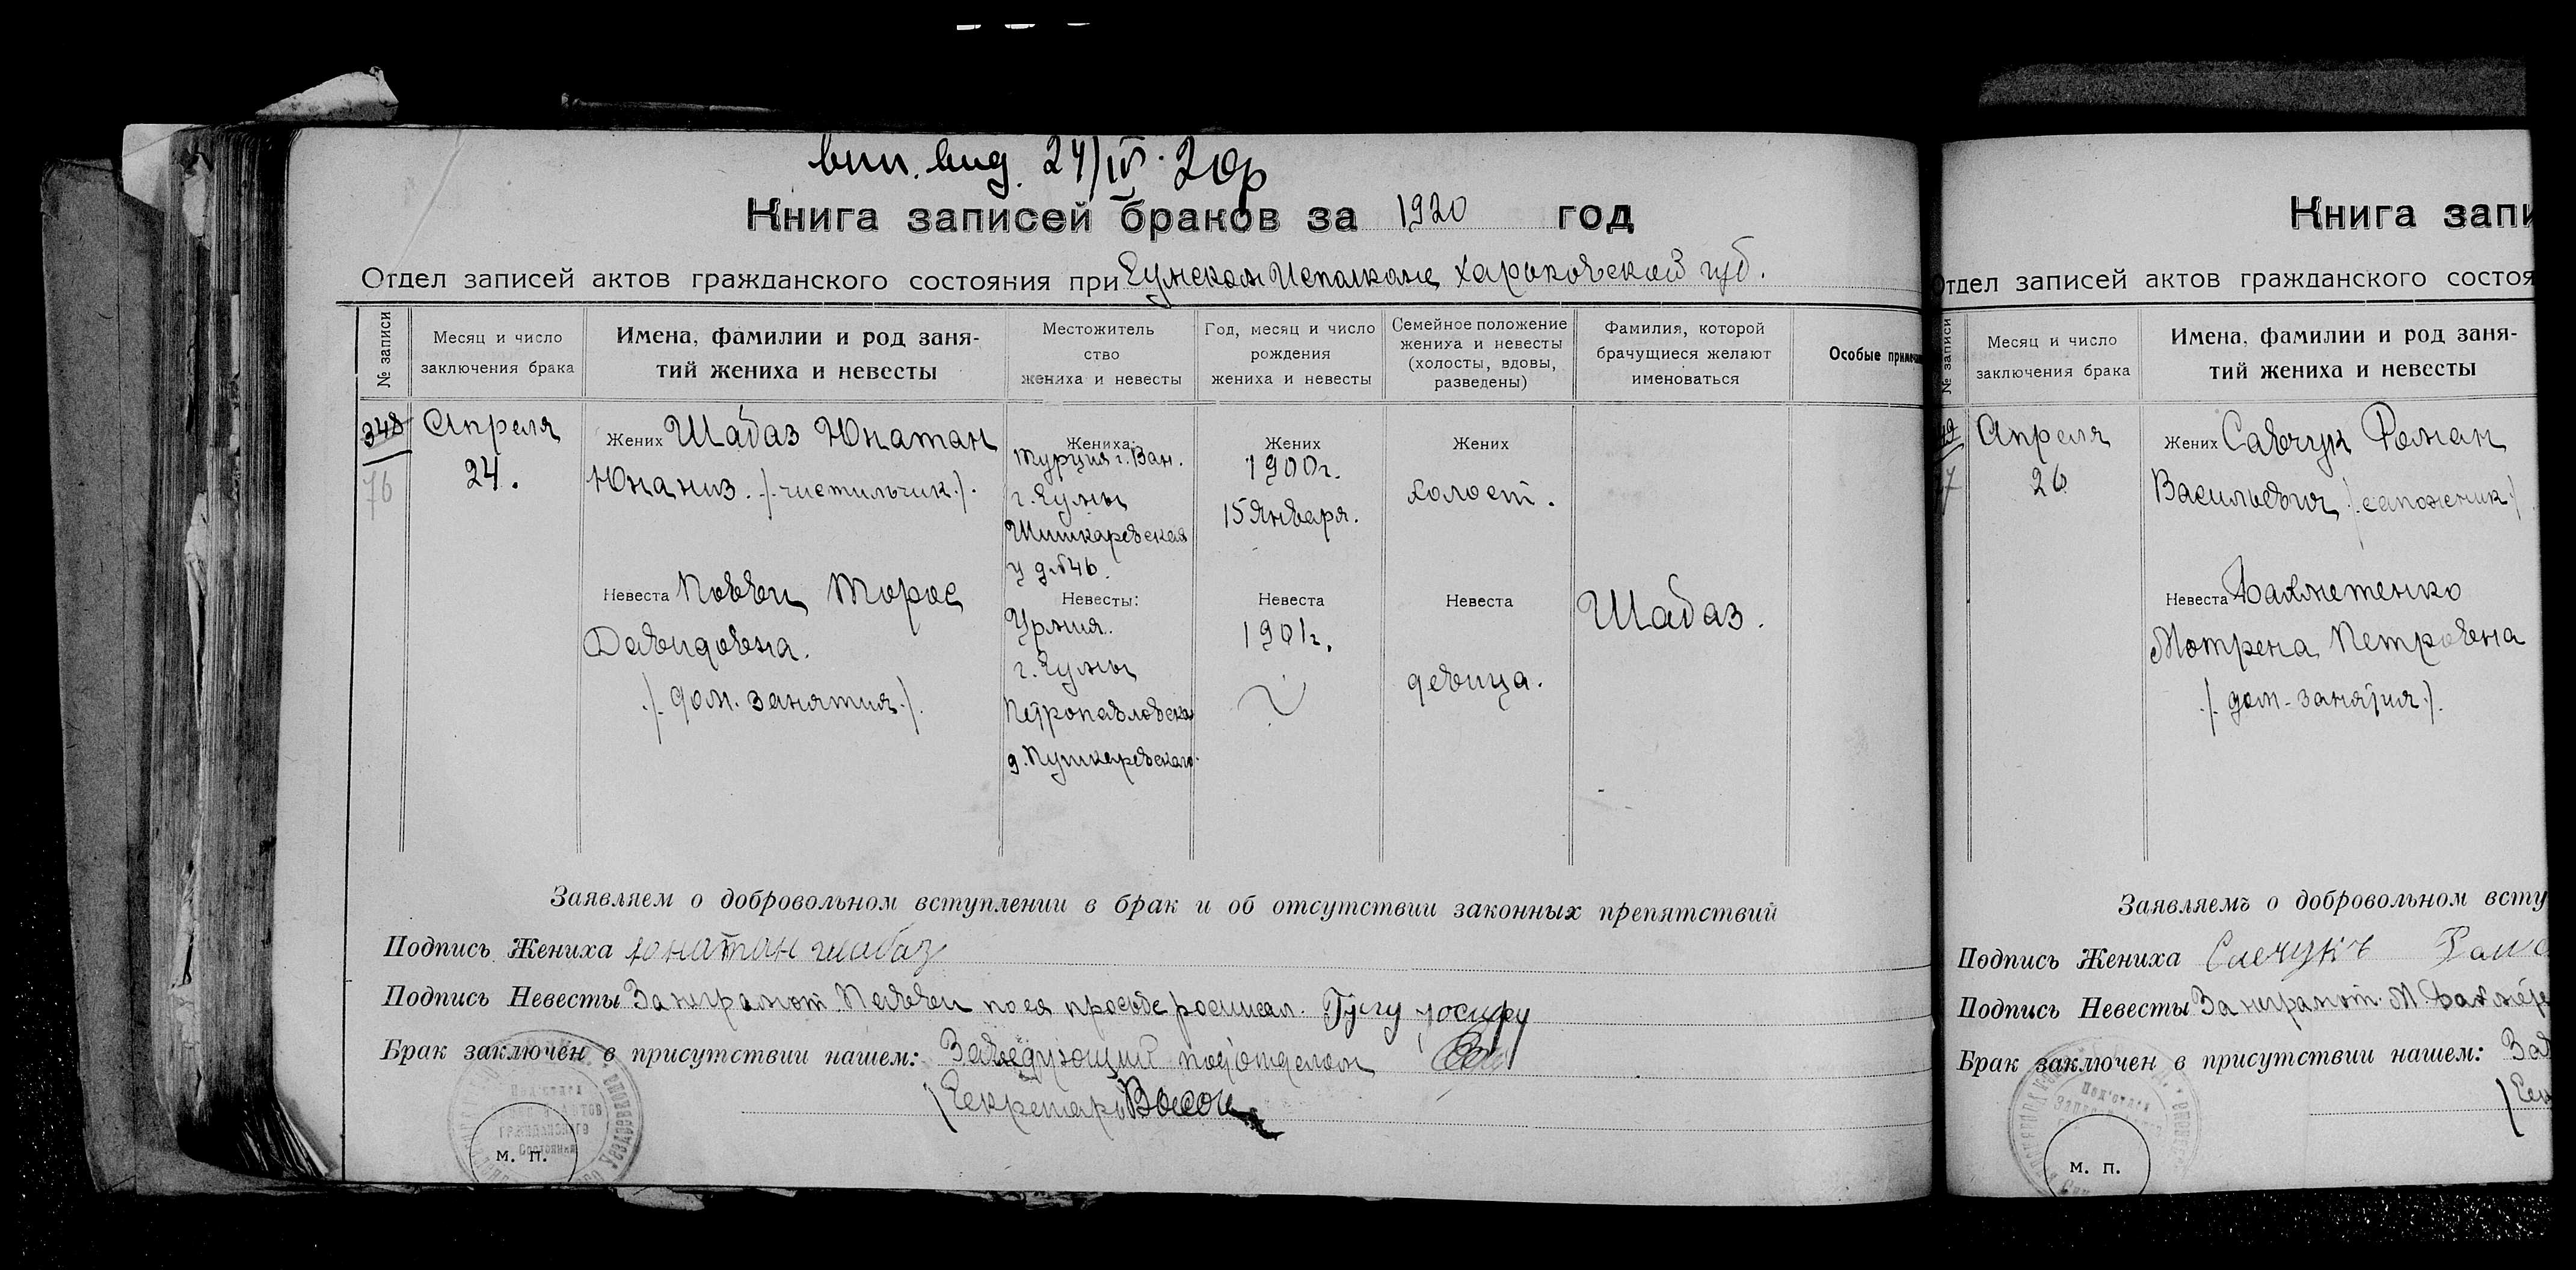 вип. вид. 24/IV. 20р
Книга записей браков за 1920 год
Отдел записей актов гражданского состояния при Сумском Исполкоме Харьковской губ.
№ записи
Месяц и число заключения брака
Имена, фамилии и род занятий жениха и невесты
Местожительство жениха и невесты
Год, месяц и число рождения жениха и невесты
Семейное положение жениха и невесты (холосты, вдовы, разведены)
Фамилия, которой брачущиеся желают именоваться
Особые
348
76
Апреля
24.
Жених Шабаз Юнатан
Юнаниз. /. чистильчик ./.
Жениха:
Турция г. Ван.
г. Сумы
Шишкаревская
у д № 46.
Жених
1900г.
15 Января.
Жених
холост.
Невеста Торос
Давидовна.
./. дом. занятия ./.
Невесты:
Урмия.
г. Сумы
Петропавловская
д. Пушкаревского.
Невеста
1901г.
Невеста
девица.
Шабаз.
Заявляем о добровольном вступлении в брак и об отсутствии законных препятствий
Подпись Жениха юнатан шабаз
Подпись Невесты За неграмот. по ея просьбе росписал.
Брак заключен в присутствии нашем: Заведующий подотделом
Секретарь
м. п.
Книга запи
Отдел записей актов гражданского состоя
№ записи
Месяц и число заключения брака
Имена, фамилии и род занятий жениха и невесты
Апреля
26
Жених Савчук Роман
Васильевич /. сапожник ./
Невеста
Мотрена Петровна
./. дом. занятия ./.
Заявляемъ о добровольном всту
Подпись Жениха
Подпись Невесты За неграмот. М.
Брак заключен в присутствии нашем: Зав
м. п.